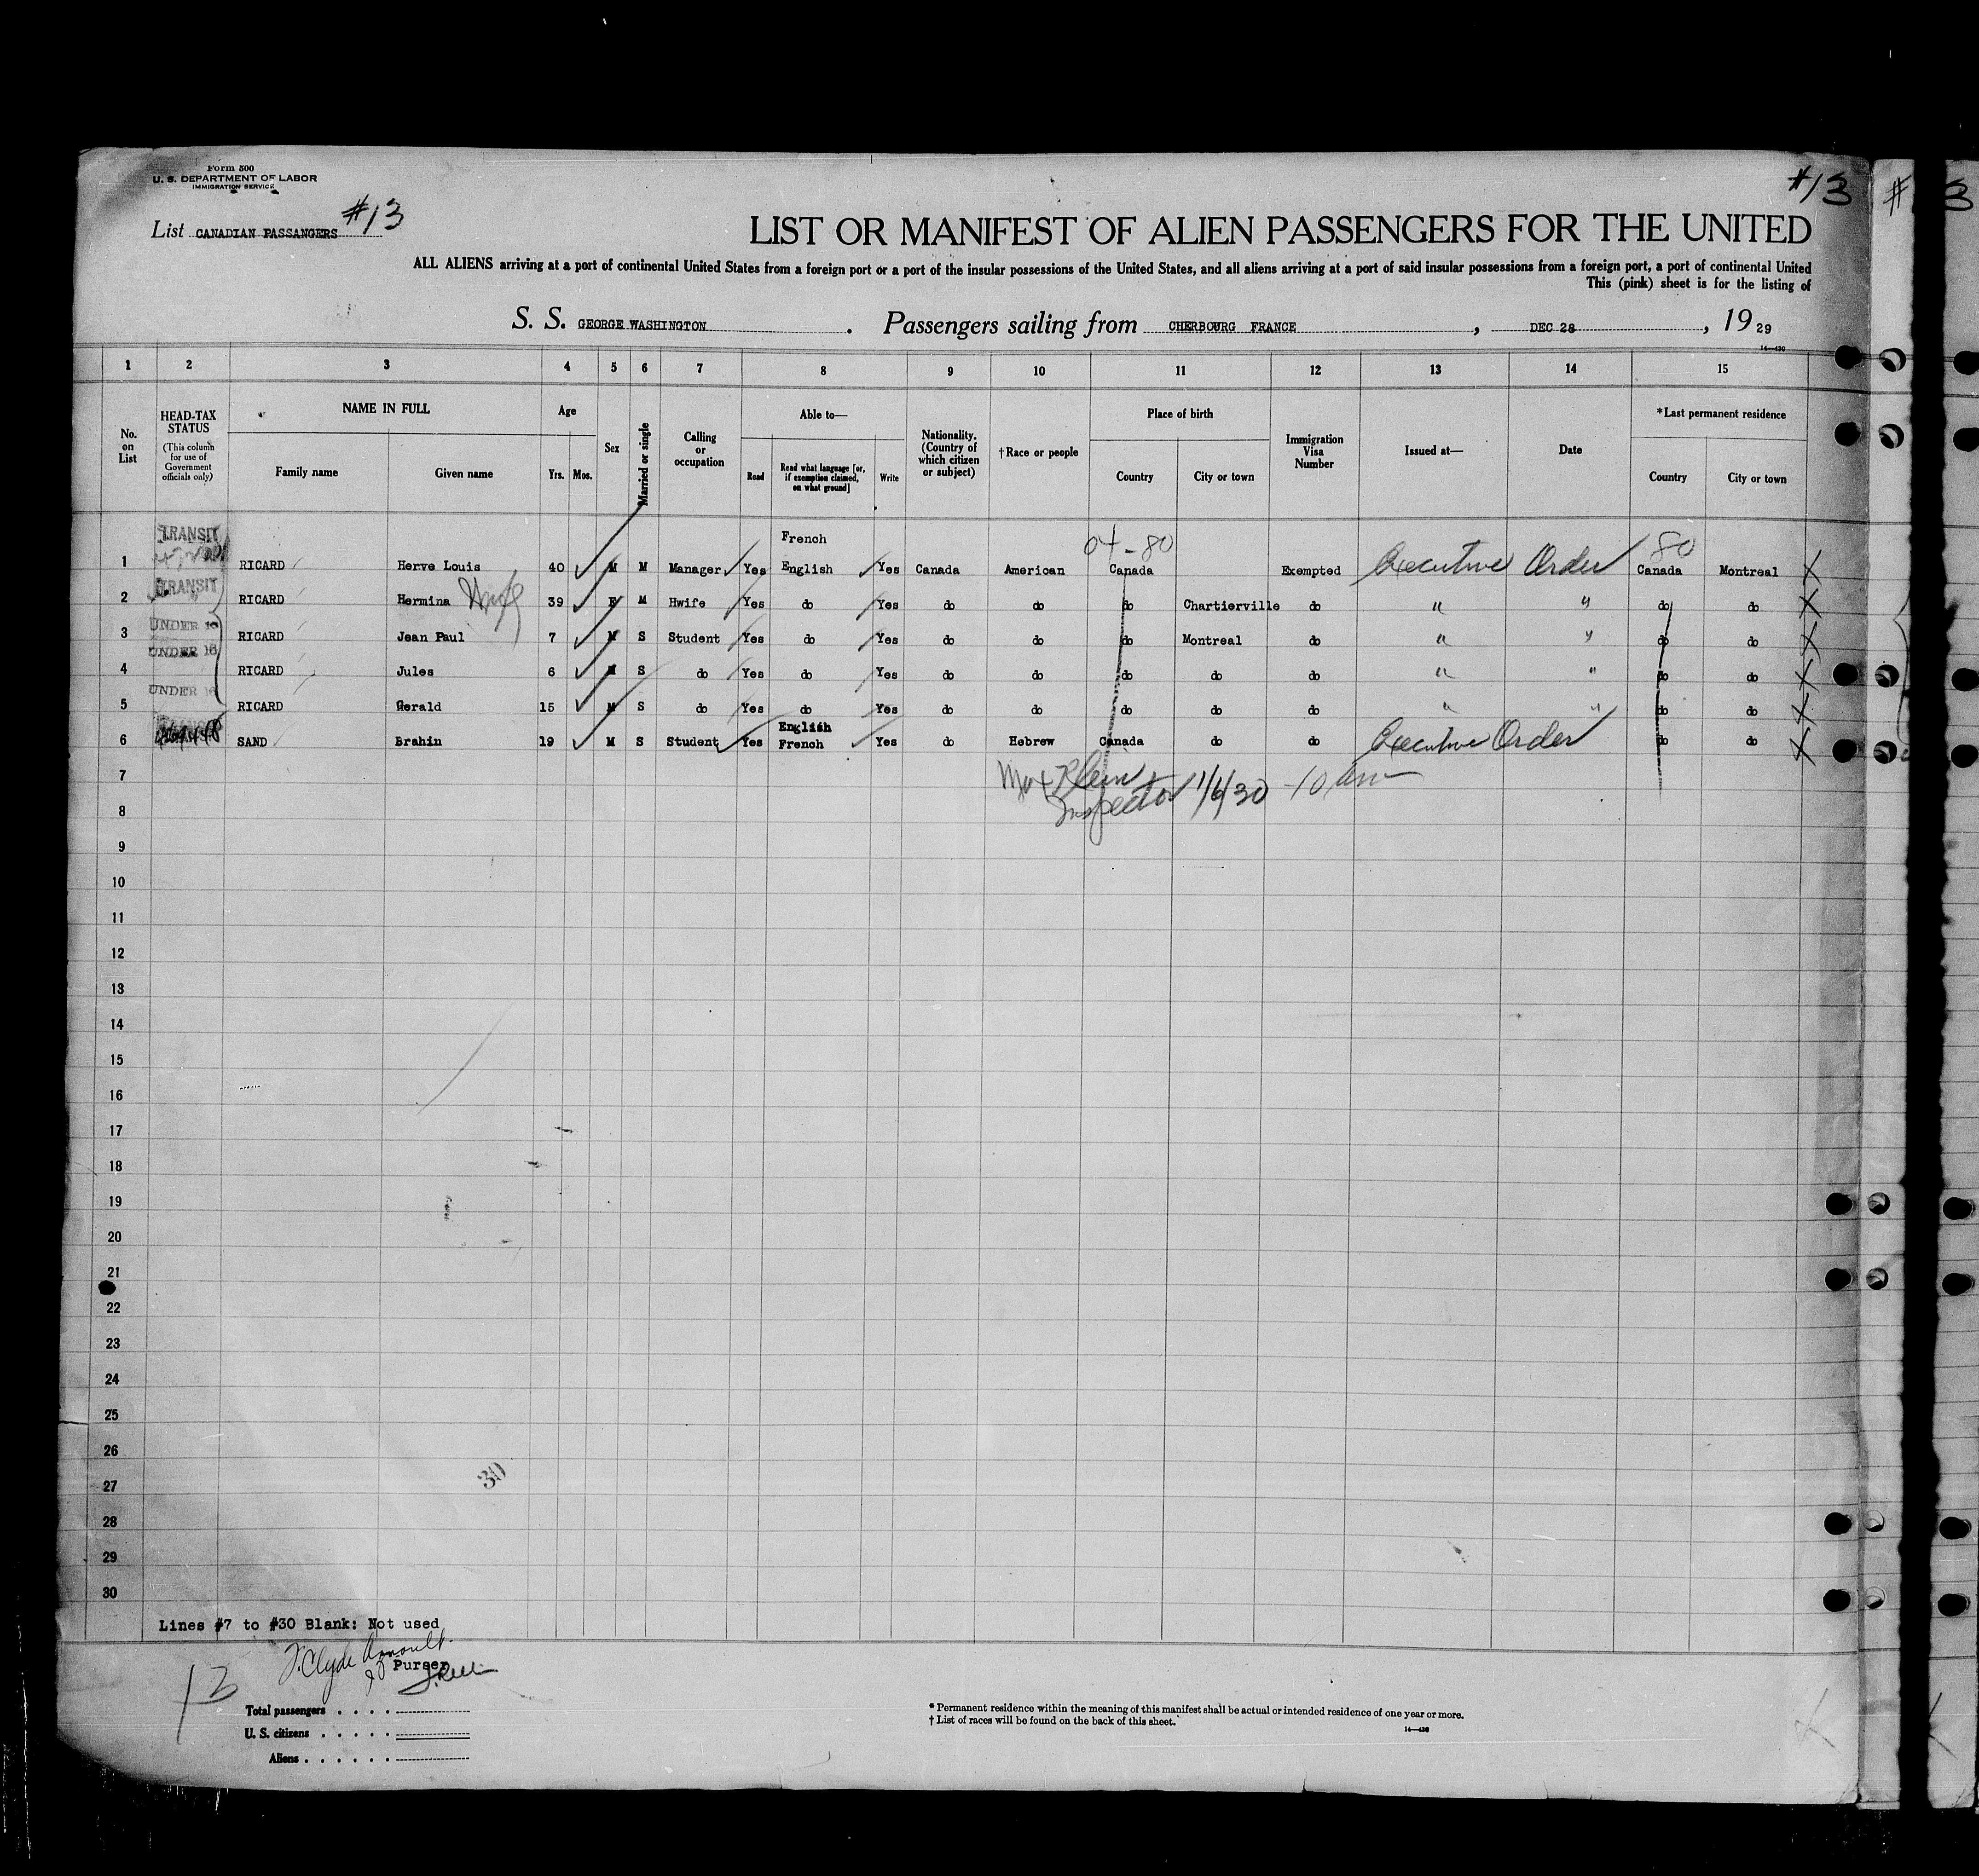 Form 500
U. S. DEPARTMENT OF LABOR
IMMIGRATION SERVICE
#13
#13
List CANADIAN PASSANGERS
LIST OR MANIFEST OF ALIEN PASSENGERS FOR THE UNITED
ALL ALIENS arriving at a port of continental United States from a foreign port or a port of the insular possessions of the United States, and all aliens arriving at a port of said insular possessions from a foreign port, a port of continental United
This (pink) sheet is for the listing of
S. S. GEORGE WASHINGTON . Passengers sailing from CHERBOURG FRANCE , DEC 28 , 19 29
14—430
1 2 3 4 5 6 7 8 9 10 11 12 13 14 15
No. on List
HEAD-TAX STATUS (This column for use of Government officials only)
NAME IN FULL Family name Given name
Age Yrs. Mos.
Sex
Married or single
Calling or occupation
Able to— Read Read what language [or, if exemption claimed, on what ground] Write
Nationality. (Country of which citizen or subject)
†Race or people
Place of birth Country City or town
Immigration Visa Number
Issued at—
Date
*Last permanent residence Country City or town
TRANSIT French 04-80 80
1 RICARD Herve Louis 40 M M Manager Yes English Yes Canada American Canada Exempted Executive Order Canada Montreal X
TRANSIT
2 RICARD Hermina Wife 39 F M Hwife Yes do Yes do do do Chartierville do " " do do X
UNDER 16
3 RICARD Jean Paul 7 M S Student Yes do Yes do do do Montreal do " " do do X
UNDER 16
4 RICARD Jules 6 M S do Yes do Yes do do do do do " " do do X
UNDER 16
5 RICARD Gerald 15 M S do Yes do Yes do do do do do " " do do X
English
6 SAND Brahin 19 M S Student Yes French Yes do Hebrew Canada do do Executive Order do do X
7 Max Klein
8 Inspector 1/6/30 -10 am
9
10
11
12
13
14
15
16
17
18
19
20
21
22
23
24
25
26
27
30
28
29
30
Lines #7 to #30 Blank: Not used
Purser
13
Total passengers
U. S. citizens
Aliens
* Permanent residence within the meaning of this manifest shall be actual or intended residence of one year or more.
† List of races will be found on the back of this sheet.
14—430